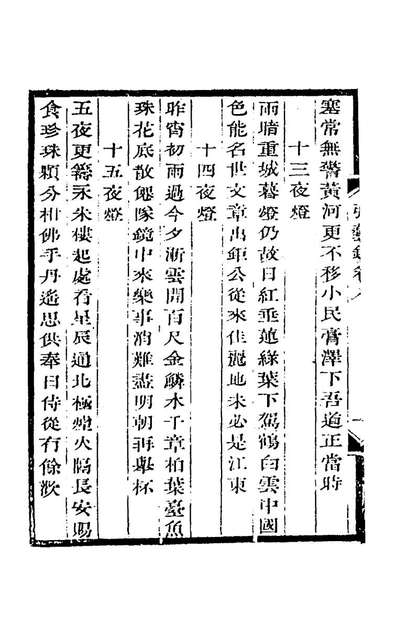 塞常無警黃河更不移小民膏澤下吾道正當時
十三夜燈
雨暗重城暮燈仍故日紅垂蓮綠葉下駕鶴白雲中國
色能名世文章出鉅公從來佳麗地未必是江東
十四夜燈
昨宵初雨過今夕漸雲開百尺金鱗木千章柏葉臺魚
珠花底散馳隊鏡中來樂事消難盡明朝再舉杯
十五夜燈
五夜更籌永朱樓起處看星辰通北極燈火勝長安賜
食珍珠顆分柑佛手丹遙思供奉日侍從有餘歡
弗藝錄卷八